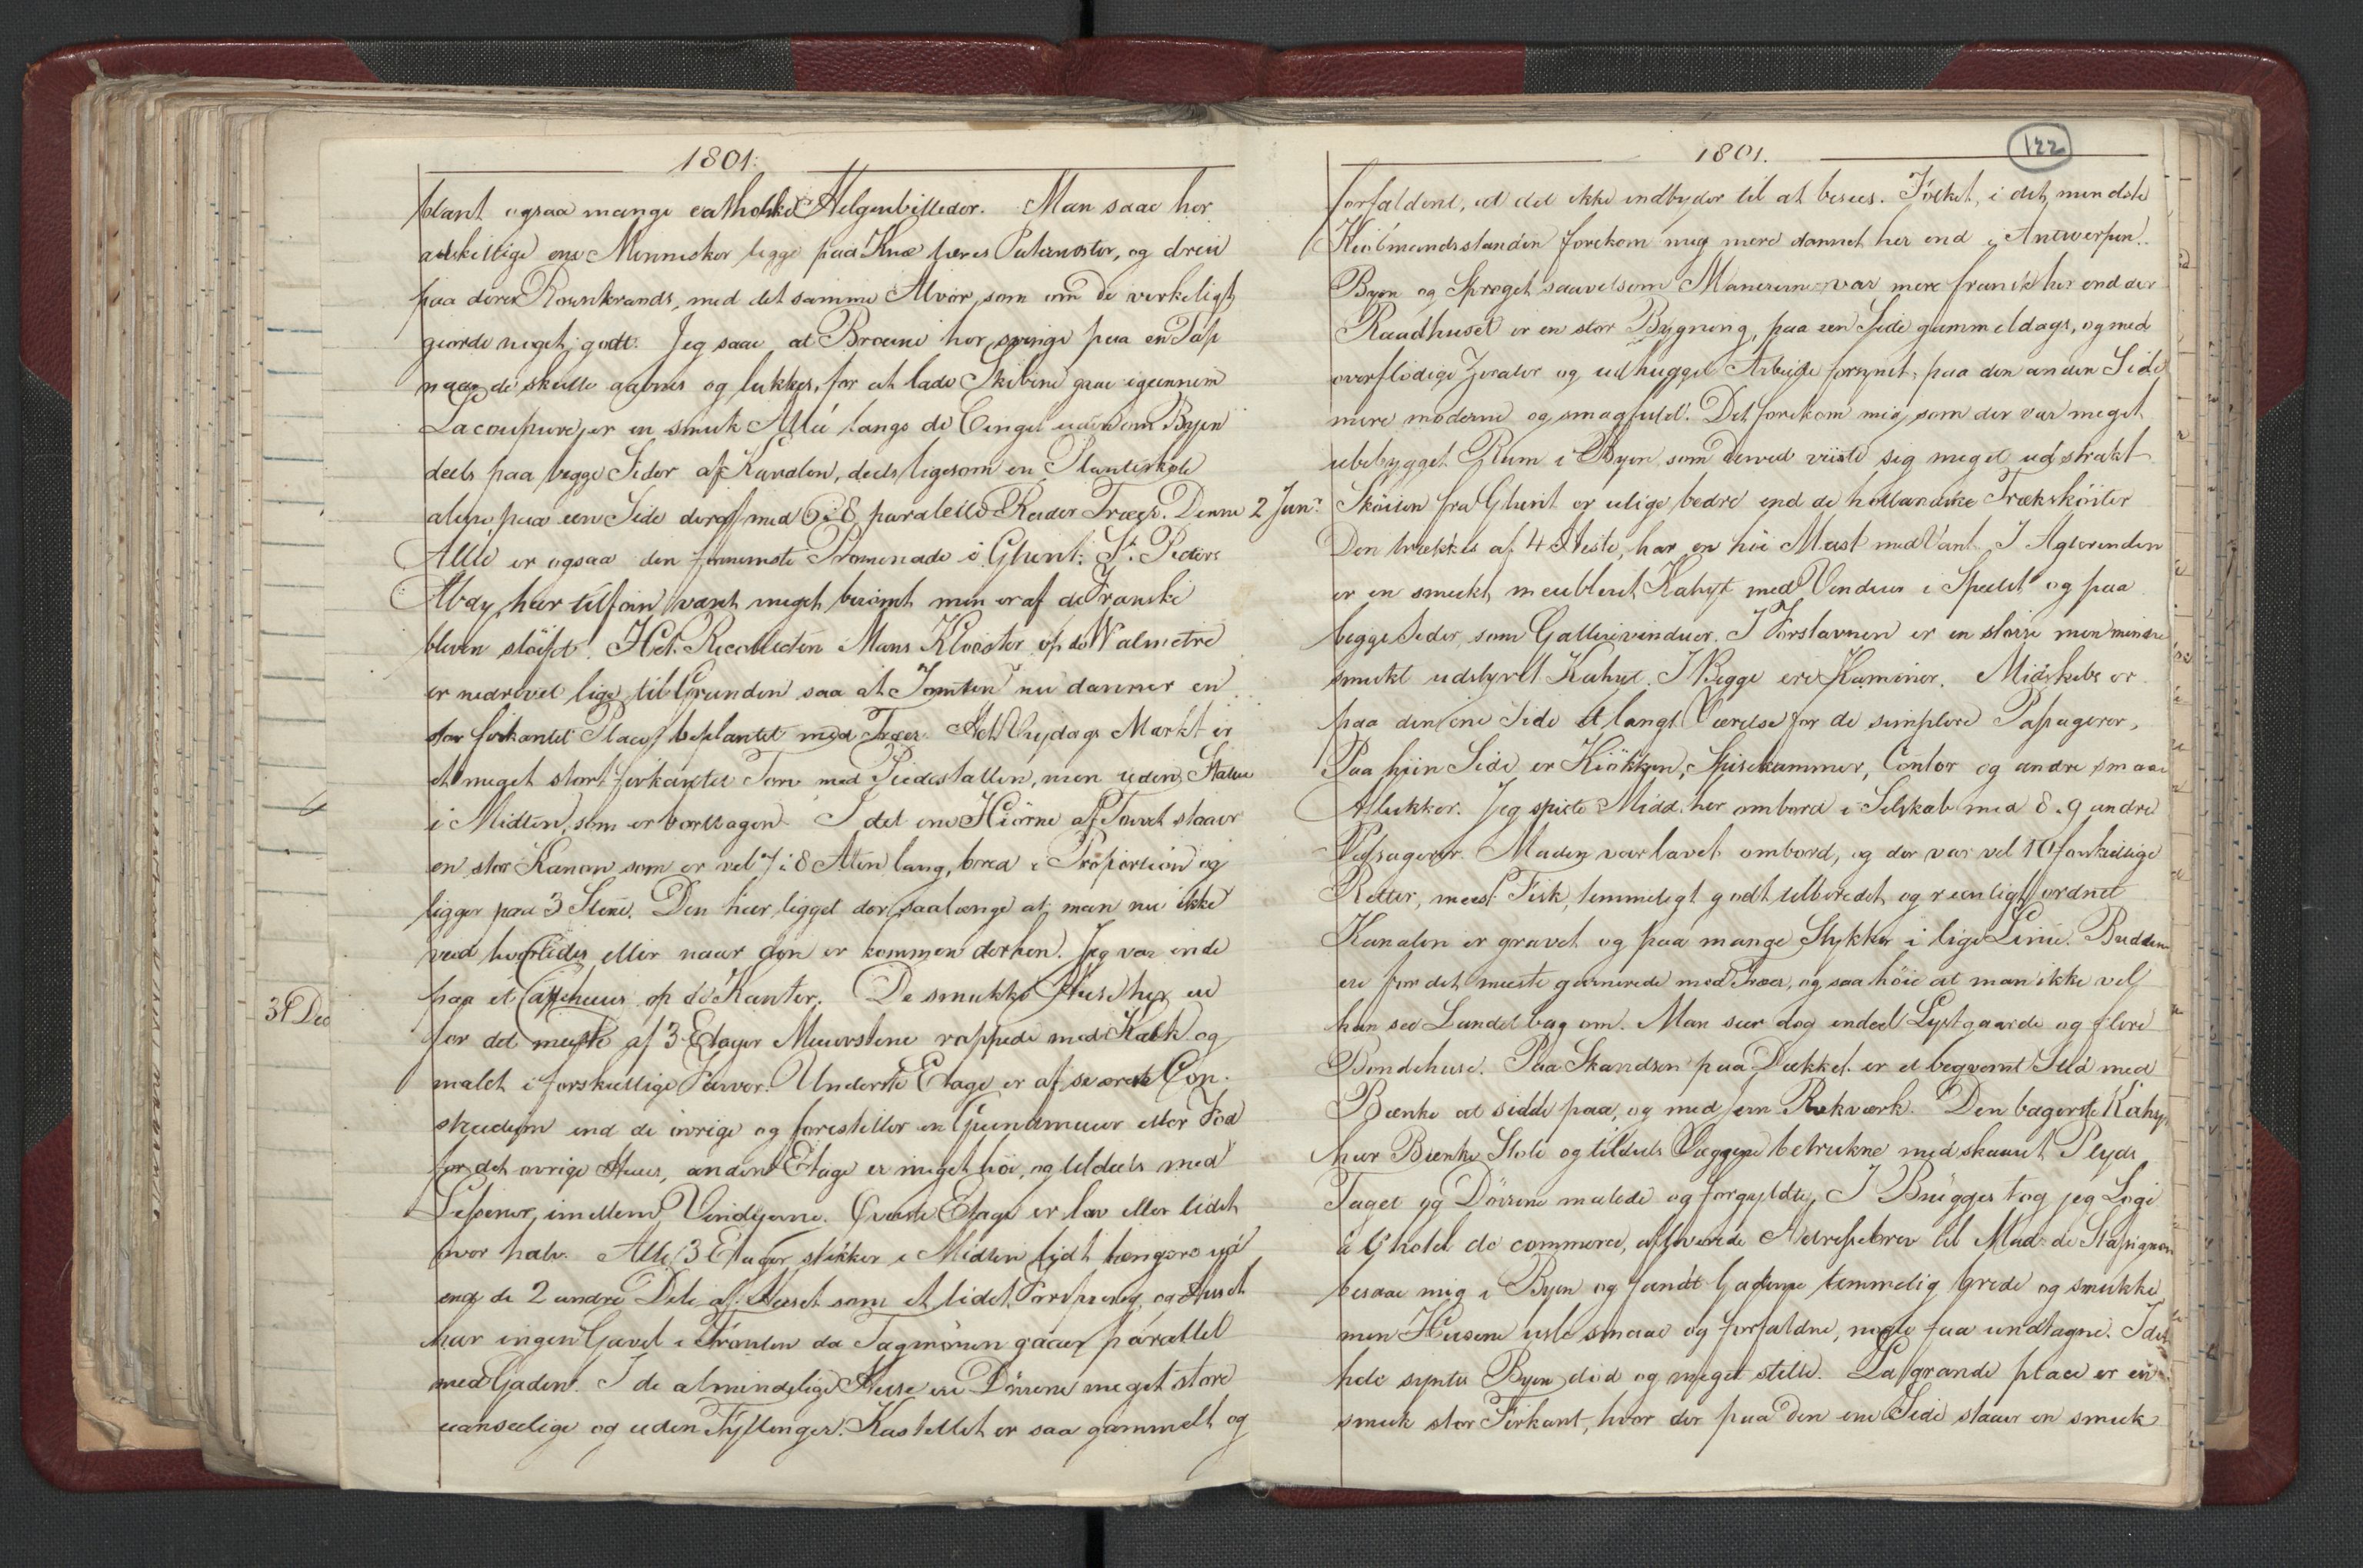 1801.
blant ogsaa mange catholske Helgenbilleder. Man saae her
adskillige Mennisker ligge paa Knæ Paternoster, og dreie
paa deres Rosenkrands, med det samme Alvor, som om de virkeligt
giorde noget godt. Jeg saae at Broerne her svinge paa en Tap
naar de skulle aabnes og lukkes, for at lade Skibene gaae igiennem
Lacoupure, er en smuk Allé langs de Cingel uden om Byen
deels paa begge Sider af Kanalen, deels ligesom en Planteskole
alene paa een Side deraf med 6 à 8 paralelle Rader Træer. Denne
Allée er ogsaa den fornemste Promenade i Ghent. St. Peders
Abdy har tilforn været meget berömt men er af de Franske
bleven slöifet. Het Recolleten Mans Klooster op de Walmetre
er nedrevet lige til Grunden saa at Tomten nu danner en
stor firkantet Place beplantet med Træer. Het Vrydags Markt er
et meget stort firkantet Torv med Piedestallen, men uden Statue
i Midten, som er borttagen. I det ene Hiörne af Torvet staaer
en stor Kanon som er vel 7 à 8 Alen lang, bred i Proportion og
ligger paa 3 Stene. Den har ligget der saalænge at man nu ikke
veed hvorledes eller naar den er kommen derhen. Jeg var inde
paa et Caffehuus op de Kanter. De smukke Huse her ere
31 Dec
for det meste af 3 Etager Muursteene rappede med Kalk og
malet i forskiellige Farver. Underste Etage er af sværere Con-
struction end de övrige og forestiller en Grundmuur eller Fod
for det övrige Huus, anden Etage er meget höi, og tildeels med
Lessener imellem Vinduerne. Överste Etage er lav eller lidet
over halv. Alle 3 Etager stikker i Midten lidt længere ud
end de 2 andre Dele af Huset som et lidet Forspring, og Huset
har ingen Gavel i Fronten da Tagmönen gaaer parallel
med Gaden. I de almindelige Huse ere Dörrene meget store
uanseelige og uden Fyllinger. Kastellet er saa gammelt og
1801.
122
forfaldent, at det ikke indbyder til at besees. Folket, i det mindste
Kiöbmandsstanden forekom mig mere dannet her end i Antwerpen.
Byen og Sproget saavelsom Manererne var mere fransk her end der
Raadhuset er en stor Bygning, paa een Side gammeldags, og med
overflödige Zirater og udhugget Arbeide forsynet, paa den anden Side
mere moderne og smagfuld. Det forekom mig som der var meget
ubebygget Rum i Byen som derved viiste sig meget udstrakt
2 Janr.
Sköiten fra Ghent er ulige bedre end de hollandske Træksköiter
Den trækkes af 4 Heste, har en höi Mast med Vant. I Agterenden
er en smukt meubleret Kahyt med Vinduer i Speilet og paa
begge Sider, som Gallerivinduer. I Forstavnen er en större men mindre
smukt udstyret Kahyt. I Begge ere Kaminer. Midskibs er
paa den ene Side et langt Værelse for de simplere Passagerer,
Paa hiin Side er Kiökken, Spisekammer, Contor og andre smaae
Aflukker. Jeg spiste Midd. her ombord i Selskab med 8-9 andre
Passagerer. Maden var lavet ombord, og der var vel 10 forskiellige
Retter, meest Fisk, temmeligt godt tilberedet, og reenligt ordnet
Kanalen er gravet og paa mange Stykker i lige Linie. Bredderne
ere for det meeste garnerede med Træer, og saa höie at man ikke vel
kan see Landet bag om. Man seer dog endeel Lystgaarde og flere
Böndehuse. Paa Skandsen paa Dækket er et beqvemt Sted med
Bænke at sidde paa, og med Rekværk. Den bagerste Kahyt
har Bænke Stole og tildeels Væggene betrukne med skaaret Plyds
Taget og Dörrene malede og forgyldte. I Brügges tog jeg Logi
à l'hotel de commerce, afleverede Adressebrev til Mad. de Stapignon
besaae mig i Byen og fandt Gaderne temmelig brede og smukke
men Husene usle smaae og forfaldne, nogle faa undtagne. I det
hele syntes Byen död og meget stille. La grande place er en
smuk stor Firkant, hvor der paa den ene Side staaer en smuk